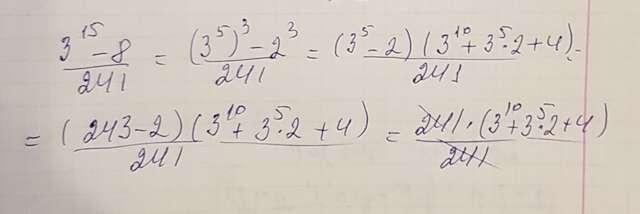 3^15 - 8 / 241 = (3^5)^3 - 2^3 / 241 = (3^5 - 2)(3^10 + 3^5 · 2 + 4) / 241 -
= (243 - 2)(3^10 + 3^5 · 2 + 4) / 241 = 241 · (3^10 + 3^5 · 2 + 4) / 241